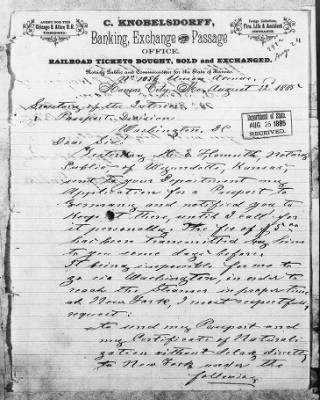 AGENT FOR THE
Chicago & Alton R.R.
C. KNOBELSDORFF,
Foreign Collections,
Fire, Life & Accident
INSURANCE.
Banking, Exchange and Passage
OFFICE.
RAILROAD TICKETS BOUGHT, SOLD and EXCHANGED.
Notary Public and Commissioner for the State of Kansas.
No. 1056 Union Avenue,
Kansas City, Mo., August 1885
Secretary of the Interior,
Passport Division
Washington, DC
Department of State,
AUG 25 1885
RECEIVED.
Dear Sir:
Yesterday Mr. E. Notary
Public of Wyandotte, Kansas,
sent to your Department my
Application for a Passport to
Germany and notified you to
keep it there, until I call for
it personally. The fee of $
has been transmitted by him
to you some days before.
It being impossible for me to
go via Washington, in order to
reach the Steamer in proper time
at New York, I most respectfully
request:
to send my Passport and
my Certificate of Naturali-
zation without delay direct
to New York under the
following